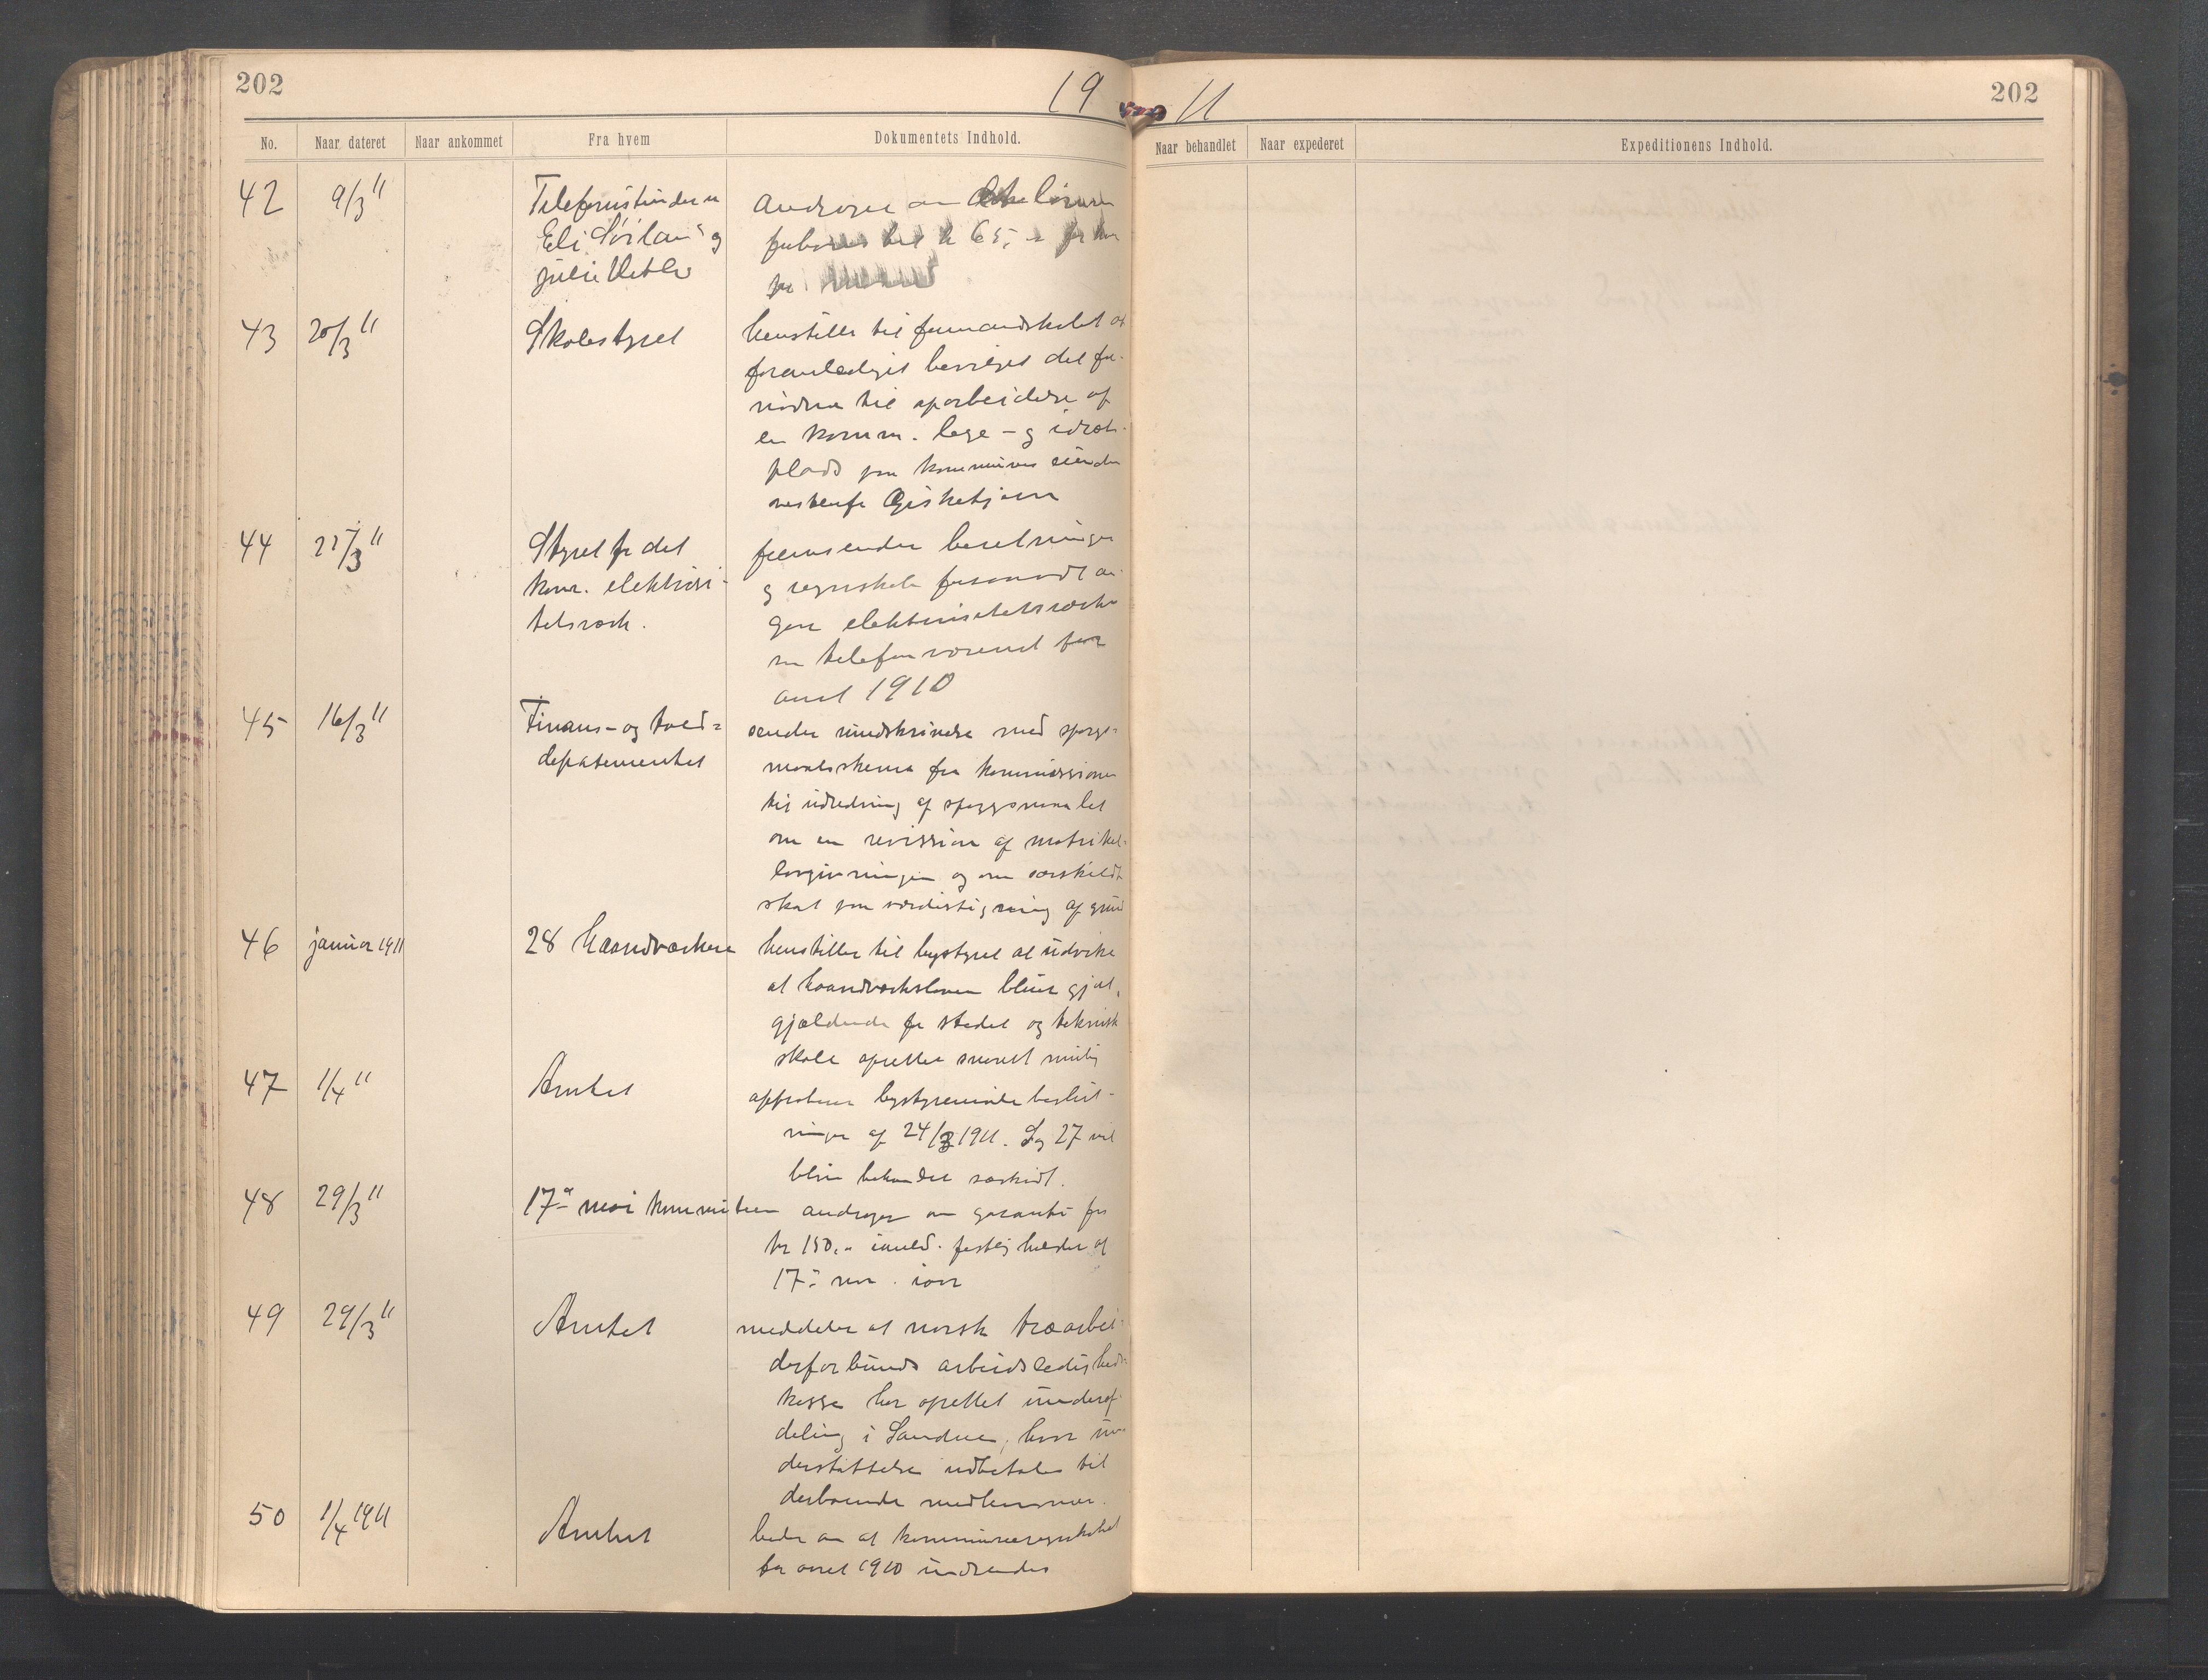 202
19
11
202
No.
Naar dateret
Naar ankommet
Fra hvem
Dokumentets Indhold.
Naar behandlet
Naar expederet
Expeditionens Indhold.
42
9/3 11
Telefonistinderne
Eli Sörlan og
Julie
androger om
til kr 65,
pr
43
20/3 11
Skolestyret
henstiller til formandskabet at
foranlediget bevilget det for-
nødne til oparbeidelse af
en komm. lege - og idræts-
plads paa kommunens eiendom
vestenfor Gisketjern
44
27/3 11
Styret for det
kom. elektrici-
tetsværk.
fremsender beretninger
og regnskab forsaavidt an-
gaar elektricitetsværket
og telefonvæsenet for
aaret 1910
45
16/3 11
Finans- og told-
departementet
sender rundskrivelse med spørgs-
maalsskema fra kommissionen
til udredning af spørgsmaalet
om en revission af matrikel-
lovgivningen og om særskildt
skat paa værdistigning af grund
46
januar 1911
28 haandværkere
henstiller til bystyret at udvirke
at haandværksloven bliver gjort
gjældende for stedet og teknisk
skole oprettet snarest mulig
47
1/4 11
Amtet
approberer bystyrets beslut-
ninger af 24/3 1911. Sag 27 vil
blive behandlet særskidt.
48
29/3 11
17de mai kommiteen
androger om garanti for
kr 150,- til festlighholdelse af
17de mai iaar
49
29/3 11
Amtet
meddeler at norsk træarbei-
derforbunds arbeidsledigheds-
kasse har oprettet underaf-
deling i Sandnes, hvor un-
derstøttelse udbetales til
derboende medlemmer.
50
1/4 1911
Amtet
beder om at kommuneregnskabet
for aaret 1910 indsendes